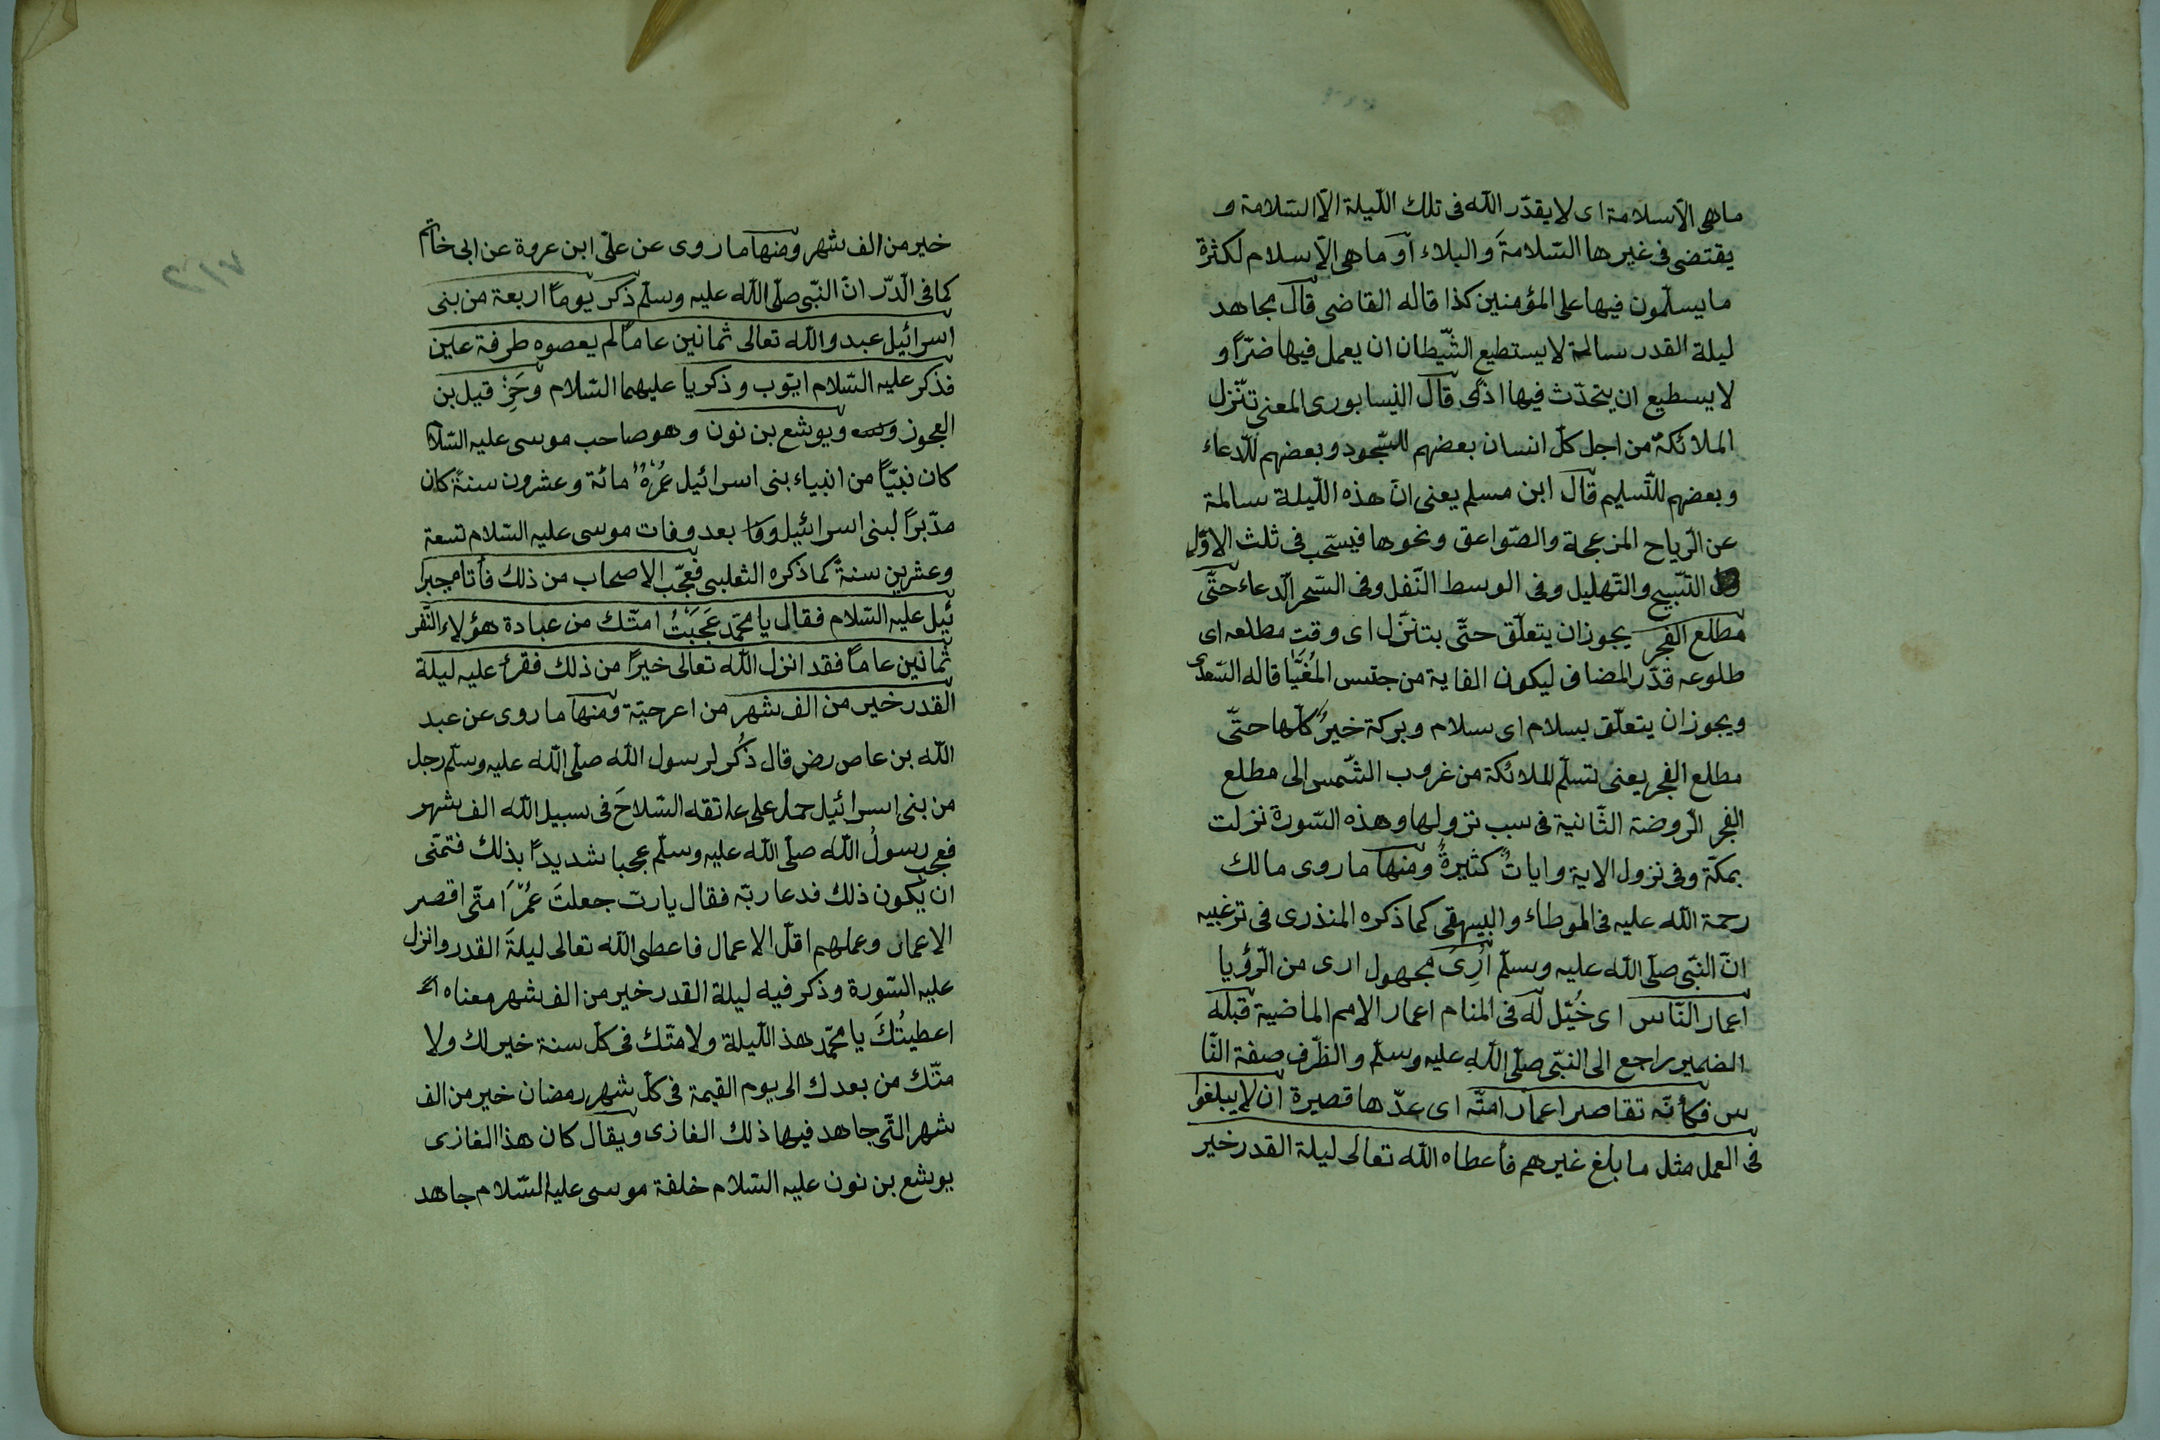 ماهى الاّ سلامة اى لا يقدّر الله فى تلك اللّيلة الاّ السّلامة و
يقتضى فى غيرها السّلامةَ والبلاء أو ماهى الاّ سلام لكثرة
ما يسلّمون فيها على المؤمنين كذا قاله القاضى قال مجاهد
ليلة القدر سالمة لا يستطيع الشّيطان ان يعمل فيها ضرّاً و
لا يسطيع ان يتحدّث فيها اذًى قال النيسابورى المعنى تنّزل
الملائكة من اجل كلّ انسان بعضهم للسّجود وبعضهم للّدعاء
وبعضهم للتّسليم قال ابن مسلم يعنى انّ هذه اللّيلة سالمة
عن الرّياح المزعجة والصّواعق ونحوها فيستحب فى ثلث الاوّل
التّسبيح والتّهليل وفى الوسط النّفل وفى السّحر الّدعاء حتّى
مطلع الفجر يجوز ان يتعلّق حتّى بتنّزل اى وقت مطلعه اى
طلوعه قدّر المضاف ليكون الغاية من جنس المُغَيّا قاله السّعدى
ويجوز ان يتعلّق بسلام اى سلام وبركة خيرٌ كلّها حتّى
مطلع الفجر يعنى تسلّم الملائكة من غروب الشّمس الى مطلع
الفجر الرّوضة الثّانية فى سبب نزولها وهذه السّورة نزلت
بمكّة وفى نزول الاية وايات كثيرةٌ ومنها ما روى مالك
رحمة الله عليه فى الموطاء والبيهقى كما ذكره المنذرى فى ترغيبه
انّ النّبى صلّى الله عليه وسلّم اُرِىَ مجهول ارى من الرّؤيا
اعمار النّاس اى خُيّل له فى المنام اعمار الامم الماضية قبله
الضمير راجع الى النبّى صلّى الله عليه وسلّم والظّرف صفة النّا
س فكأنّه تقاصر اعمار امّته اى عدّها قصيرة ان لا يبلغوا
فى العمل مثل ما بلغ غيرهم فأعطاه الله تعالى ليلة القدر خير
خير من الف شهر ومنها ما روى عن علىّ ابن عروة عن ابى خاتم
كما فى الّدرّ انّ النّبى صلّى الله عليه وسلّم ذكر يوماً اربعة من بنى
اسرائيل عبدوا الله تعالى ثمانين عاماً لم يعصوه طرفة عين
فذكر عليه السّلام ايّوب وذكريا عليهما السّلام وحَزِ قيل بن
العجوز ويوشع بن نون وهو صاحب موسى عليه السّلا
كان نبيّاً من انبياء بنى اسرائيل عُمُرُهُ مائة وعشرون سنةً كان
مدّبراً لبنى اسرائيل بعد وفات موسى عليه السّلام تسعة
وعشرين سنةً كما ذكره الثعلبى فعجّب الاصحاب من ذلك فأتاه جبرا
ئيل عليه السّلام فقال يا محمّد عَجَبَتْ امّتك من عبادة هؤلاء النّفر
ثمانين عاماً فقد انزل الله تعالى خيراً من ذلك فقرأ عليه ليلة
القدر خير من الف شهر ومنها ما روى عن عبد
الله بن عاص رض قال ذُكُر لرسول الله صلّى الله عليه وسلّم رجل
من بنى اسرائيل حمل على عاتقه السّلاحَ فى سبيل الله الف شهر
فعجب رسولُ الله صلّى الله عليه وسلّم عجبا شديداً بذلك فتمنّى
ان يكون ذلك فدعا ربّه فقال يا ربّ جعلتَ امتّى اقصر
الاعمار وعملهم اقلّ الاعمال فاعطى الله تعالى ليلةَ القدر وانزل
عليه السّورة وذكر فيه ليلة القدر خير من الف شهر معناه
اعطيتُكَ يا محمّد هذ اللّيلة ولامّتك فى كلّ سنة خير لك ولا
متّك من بعدك الى يوم القيمة فى كلّ شهر رمضان خير من الف
شهر الّتى جاهد فيها ذلك الغازى ويقال كان هذ الغازى
يوشع بن نون عليه السّلام خلفة موسى عليه السّلام جاهد